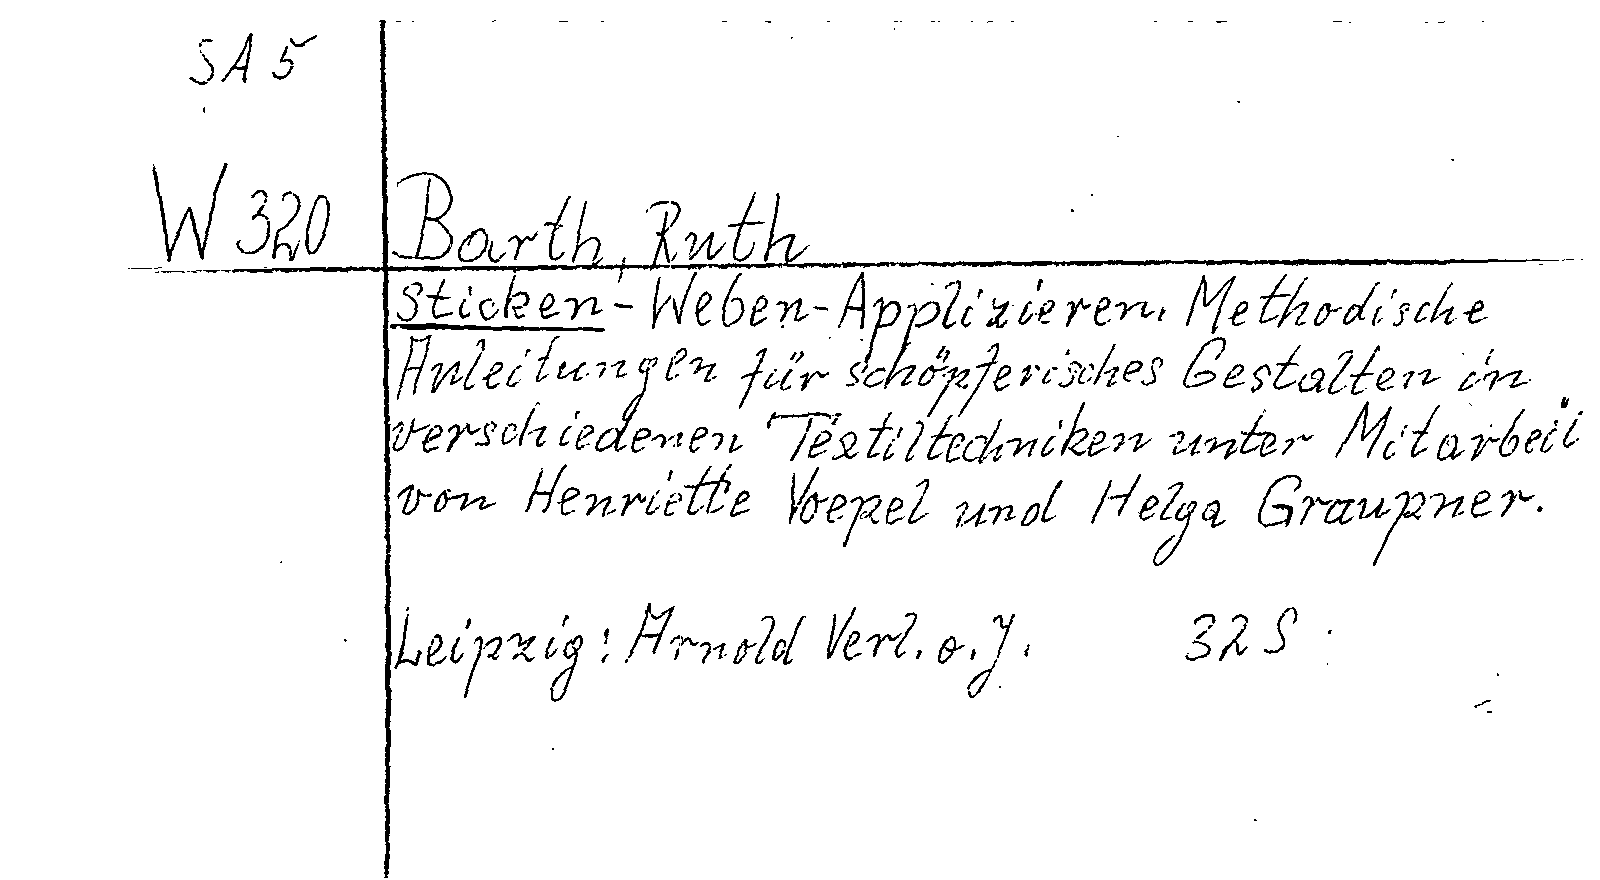 SA 5
W 320 Barth, Ruth
Sticken-Weben-Applizieren. Methodische
Anleitungen für schöpferisches Gestalten in
verschiedenen Textiltechniken unter Mitarbeit
von Henriette Voepel und Helga Graupner.
Leipzig: Arnold Verl. o. J. 32 S